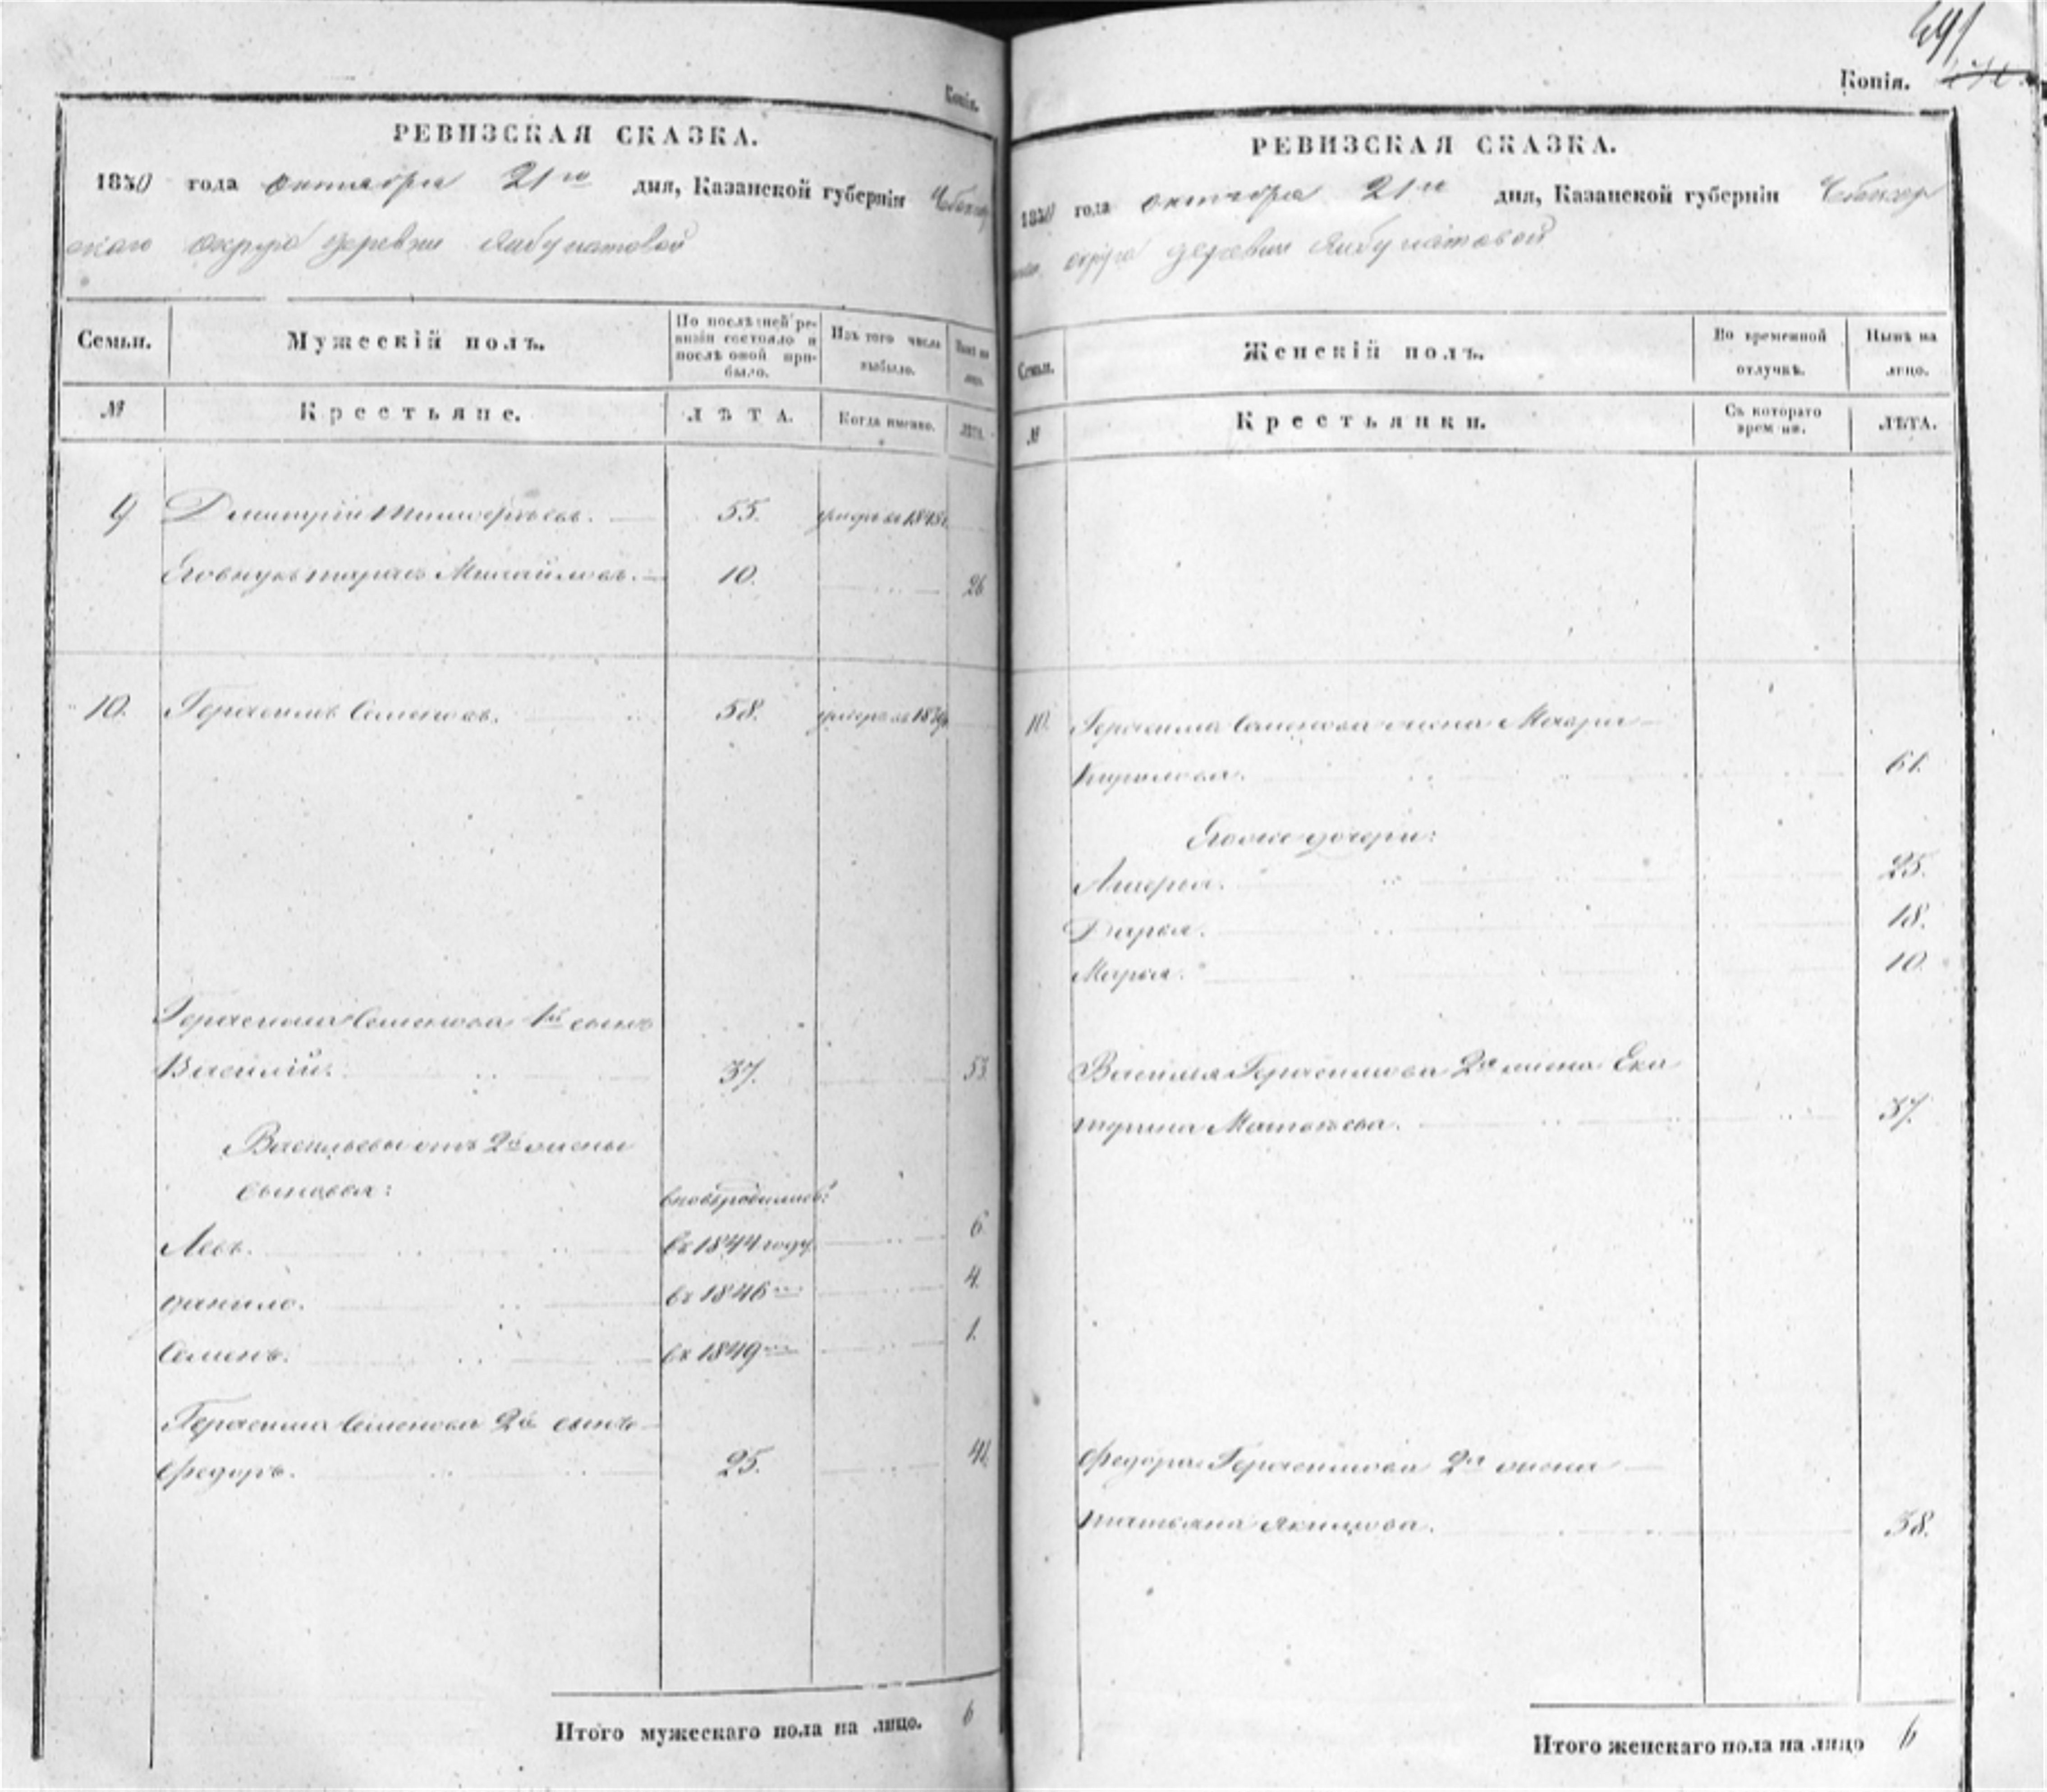 Копія.
РЕВИЗСКАЯ СКАЗКА.
1850 года октября 21го дня, Казанской губерніи Чебоксар
скаго округа деревни Янбулатовой
Семьи.
Мужескій полъ.
По послѣдней ре-
визіи состояло и
послѣ оной при-
было.
Изъ того числа
выбыло.
Нынѣ на
лицо.
№
Крестьяне.
ЛѢТА.
Когда именно.
ЛѢТА.
9 Дмитрій Тимофѣевъ. 55. умеръ въ 1848
Его внукъ Тарасъ Михайловъ. 10. 26
10. Герасимъ Семеновъ. 58. умеръ въ
Герасима Семенова 1й сынъ
Василій. 37. 53
Васильевы отъ 2й жены
сыновья: вновь родились:
Левъ. въ 1844 году 6
Данило. въ 1846 4.
Семенъ. въ 1849 1.
Герасима Семенова 2й сынъ
Федоръ. 25. 41.
Итого мужескаго пола на лицо. 6
641
Копія.
РЕВИЗСКАЯ СКАЗКА.
1850 года октября 21го дня, Казанской губерніи Чебоксар
скаго округа деревни Янбулатовой
Семьи.
Женскій полъ.
Во временной
отлучкѣ.
Нынѣ на
лицо.
№
Крестьянки.
Съ котораго
времени.
ЛѢТА.
10. Герасима Семенова жена
Кирилова. 61.
Его же дочери:
25.
Дарья. 18.
Марья. 10.
Василья Герасимова 2я жена Ека
терина Матвѣева. 37.
Федора Герасимова 2я жена
Татьяна Якимова. 38.
Итого женскаго пола на лицо 6